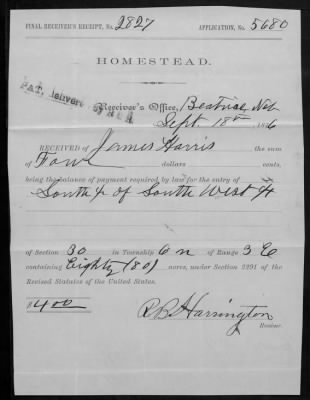 FINAL RECEIVER'S RECEIPT, No. 2827 APPLICATION, No. 5680
HOMESTEAD.
PAT. delivered
Receiver's Office, Beatrice Neb
Sept 18th 1876
RECEIVED of James Harris the sum
of Four dollars cents,
being the balance of payment required by law for the entry of
South ½ of South West ¼
of Section 30 in Township 6 n of Range 3 E
containing Eighty (80) acres, under Section 2291 of the
Revised Statutes of the United States.
$4.00
R B Harrington
Receiver.